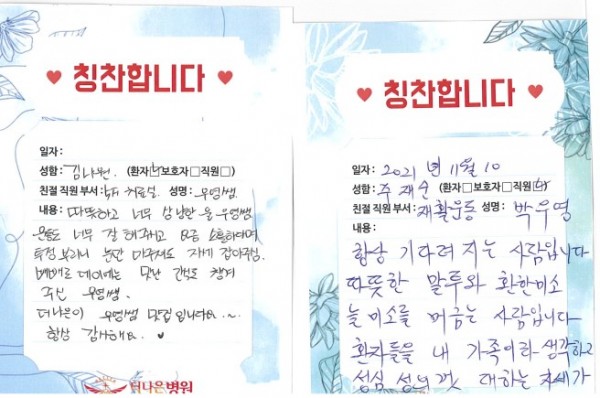 칭찬합니다
일자:
성함: 김나원. (환자☑보호자□직원□)
친절 직원 부서: 치료실. 성명: 우영쌤.
내용: 따뜻하고 너무 상냥한 우영쌤
운동도 너무 잘 해주시고
눈만 마주쳐도
빼빼로 데이에는 간식도 챙겨
주신 우영쌤.
더나은이 우영쌤
항상 감사해요. ♥
더나은병원
칭찬합니다
일자: 2021년 11월 10
성함: 주재순 (환자□보호자□직원☑)
친절 직원 부서: 재활운동 성명: 박우영
내용:
항상 기다려 지는 사람입니다
따뜻한 말투와 환한미소
늘 미소를 머금는 사람입니다
환자들을 내 가족이라 생각하고
성심 성의 껏 대하는 자세가